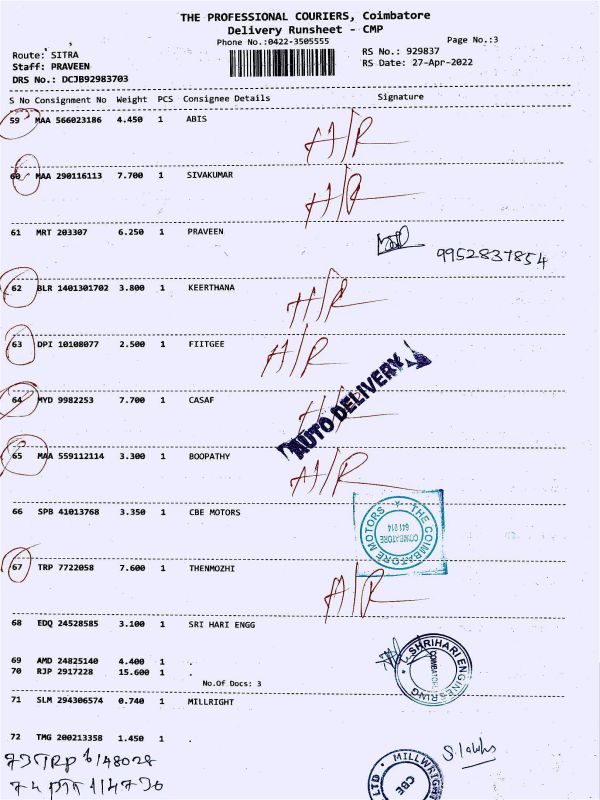 THE PROFESSIONAL COURIERS, Coimbatore
Delivery Runsheet - CMP
Phone No.:0422-3505555
Page No.:3
Route: SITRA
RS No.: 929837
Staff: PRAVEEN
RS Date: 27-Apr-2022
DRS No.: DCJB92983703
S No Consignment No Weight PCS Consignee Details Signature
59 MAA 566023186 4.450 1 ABIS
A/R
60 MAA 290116113 7.700 1 SIVAKUMAR
A/R
61 MRT 203307 6.250 1 PRAVEEN
9952837854
62 BLR 1401301702 3.800 1 KEERTHANA
A/R
63 DPI 10108077 2.500 1 FIITGEE
A/R
64 MYD 9982253 7.700 1 CASAF
A/R
AUTO DELIVERY
65 MAA 559112114 3.300 1 BOOPATHY
A/R
66 SPB 41013768 3.350 1 CBE MOTORS
THE COIMBATORE MOTORS
COIMBATORE
641 014
67 TRP 7722058 7.600 1 THENMOZHI
A/R
68 EDQ 24528585 3.100 1 SRI HARI ENGG
SHRIHARI ENGINEERING
COIMBATORE
69 AMD 24825140 4.400 1 .
70 RJP 2917228 15.600 1 .
No.Of Docs: 3
71 SLM 294306574 0.740 1 MILLRIGHT
72 TMG 200213358 1.450 1 .
MILLWRIGHT
LTD
CBE
73 TRP